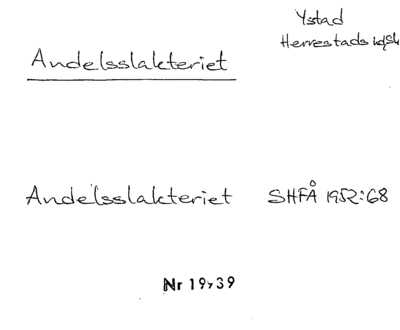 Ystad
Herrestads
Andelsslakteriet
Andelsslakteriet SHFÅ 1952:68
Nr 19,39